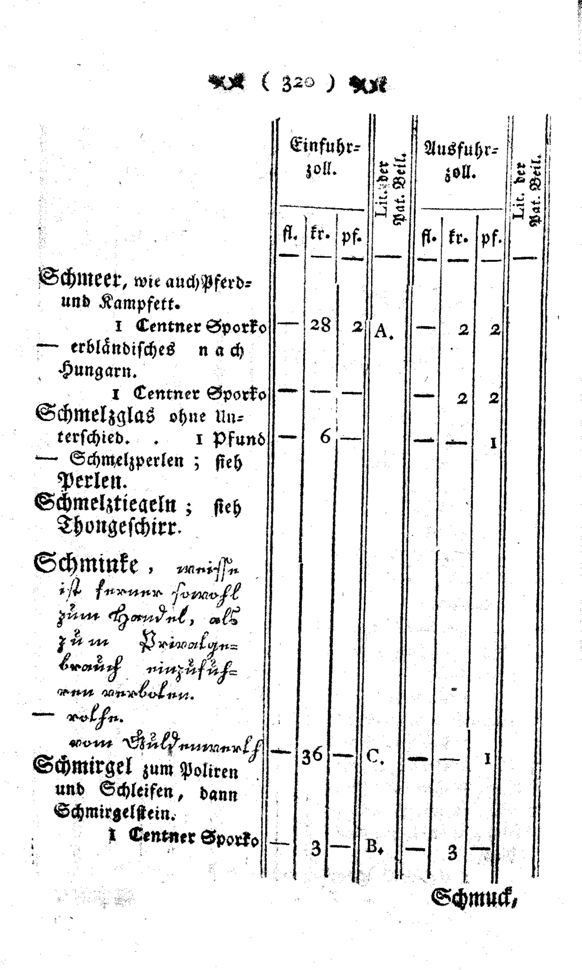 ( 320 )
Einfuhr= Lit. der Ausfuhr= Lit. der
zoll. Pat. Beil. zoll. Pat. Beil.
fl. kr. pf. fl. kr. pf.
— — — — — — — —
Schmeer, wie auch Pferd=
und Kampfett.
1 Centner Sporko — 28 2 A. — 2 2
— erbländisches nach
Hungarn.
1 Centner Sporko — — — — 2 2
Schmelzglas ohne Un=
terschied. . 1 Pfund — 6 — — — 1
— Schmelzperlen; sieh
Perlen.
Schmelztiegeln; sieh
Thongeschirr.
Schminke, weisse
ist ferner sowohl
zum Handel, als
zum Privatge=
brauch einzufüh=
ren verboten.
— rothe.
vom Guldenwerth — 36 — C. — — 1
Schmirgel zum Poliren
und Schleifen, dann
Schmirgelstein.
1 Centner Sporko — 3 — B. — 3 —
Schmuck,